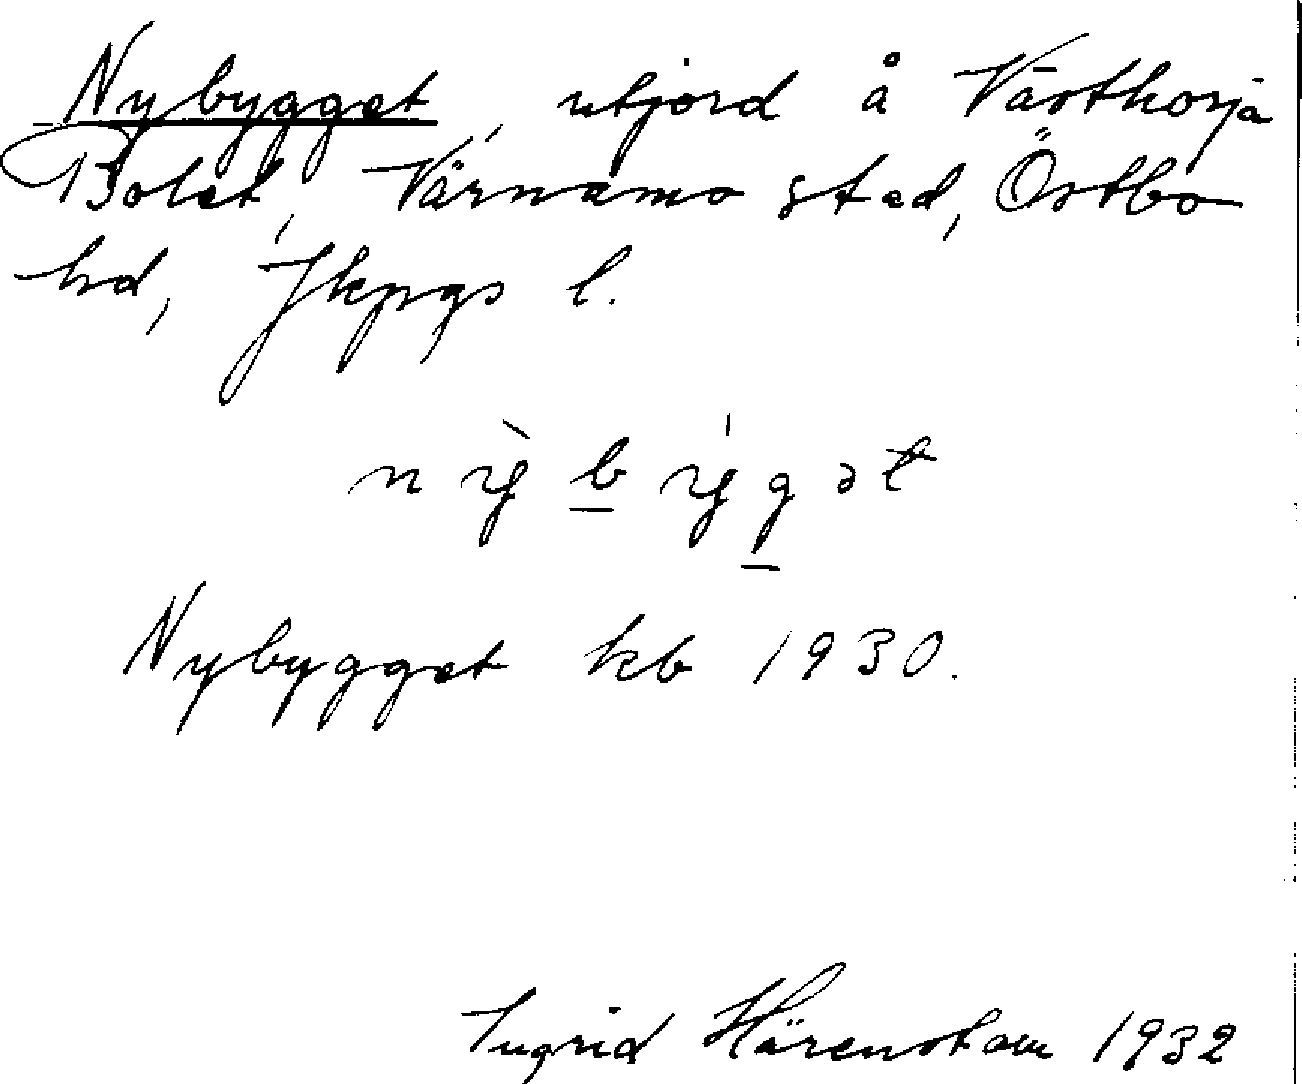 Nybygget, utjord å Västhorja
Bolet, Värnamo stad, Östbo
hd, Jkpgs l.
nỳbýgət
Nybygget kb 1930.
Ingrid Härenstam 1932